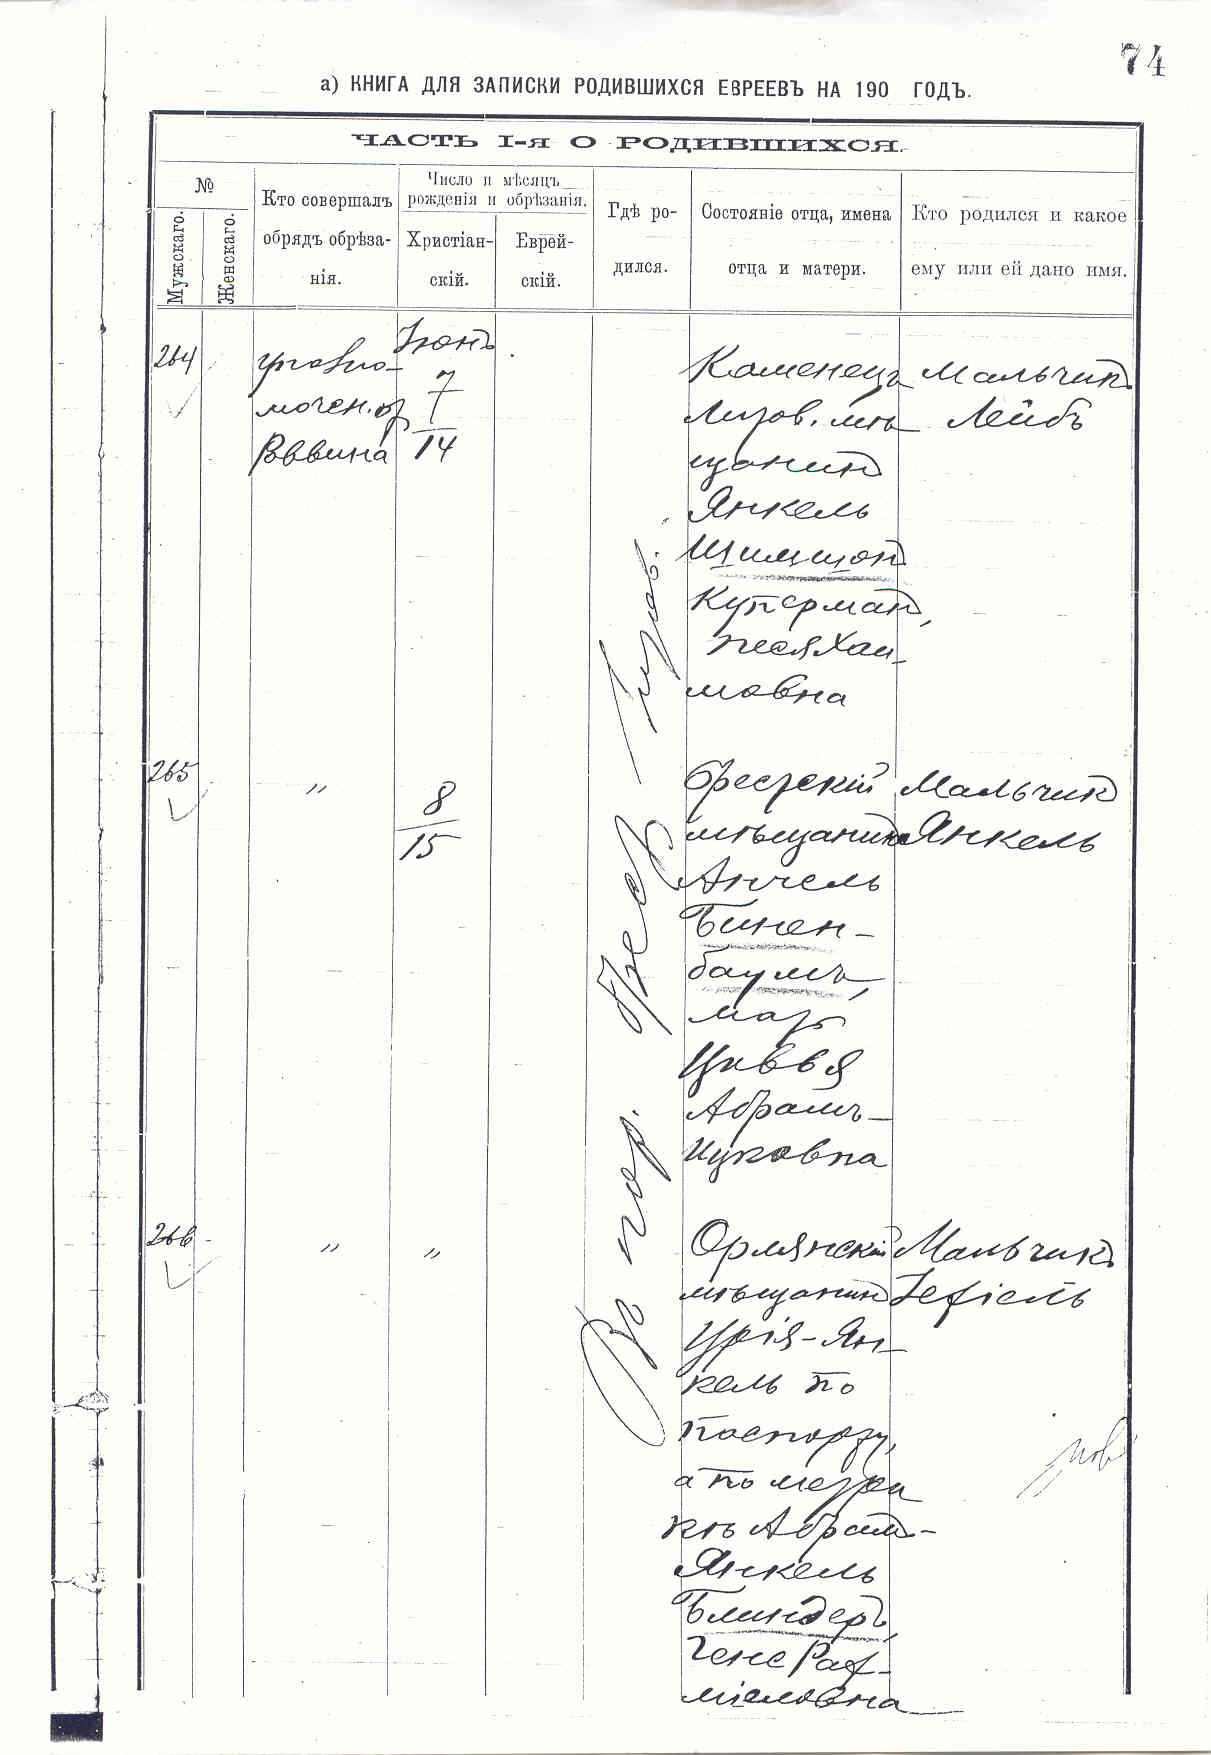 74
а) КНИГА ДЛЯ ЗАПИСКИ РОДИВШИХСЯ ЕВРЕЕВЪ НА 190 ГОДЪ.
ЧАСТЬ I-я О РОДИВШИХСЯ.
№
Мужскаго.
Женскаго.
Кто совершалъ
обрядъ обрѣза-
нія.
Число и мѣсяцъ
рожденія и обрѣзанія.
Христіан-
скій.
Еврей-
скій.
Гдѣ ро-
дился.
Состояніе отца, имена
отца и матери.
Кто родился и какое
ему или ей дано имя.
264
уполно-
мочен. от
Раввина
Іюнь
7
14
Въ гор. Брест Литов.
Каменец
Литов. мѣ
щанин
Янкель
Шимшон
Куперман,
Песя Хаи-
мовна
Мальчик
Лейбъ
265
"
8
15
Брестскій
мѣщанин
Анчель
Бинен-
баумъ,
мать
Цивья
Абрамъ-
Ицковна
Мальчик
Янкель
266
"
"
Орлянскій
мѣщанин
Урія-Ян-
кель по
паспорту,
а по метри
кѣ Абрам-
Янкель
Блиндеръ,
Гене Раф-
міеловна
Мальчик